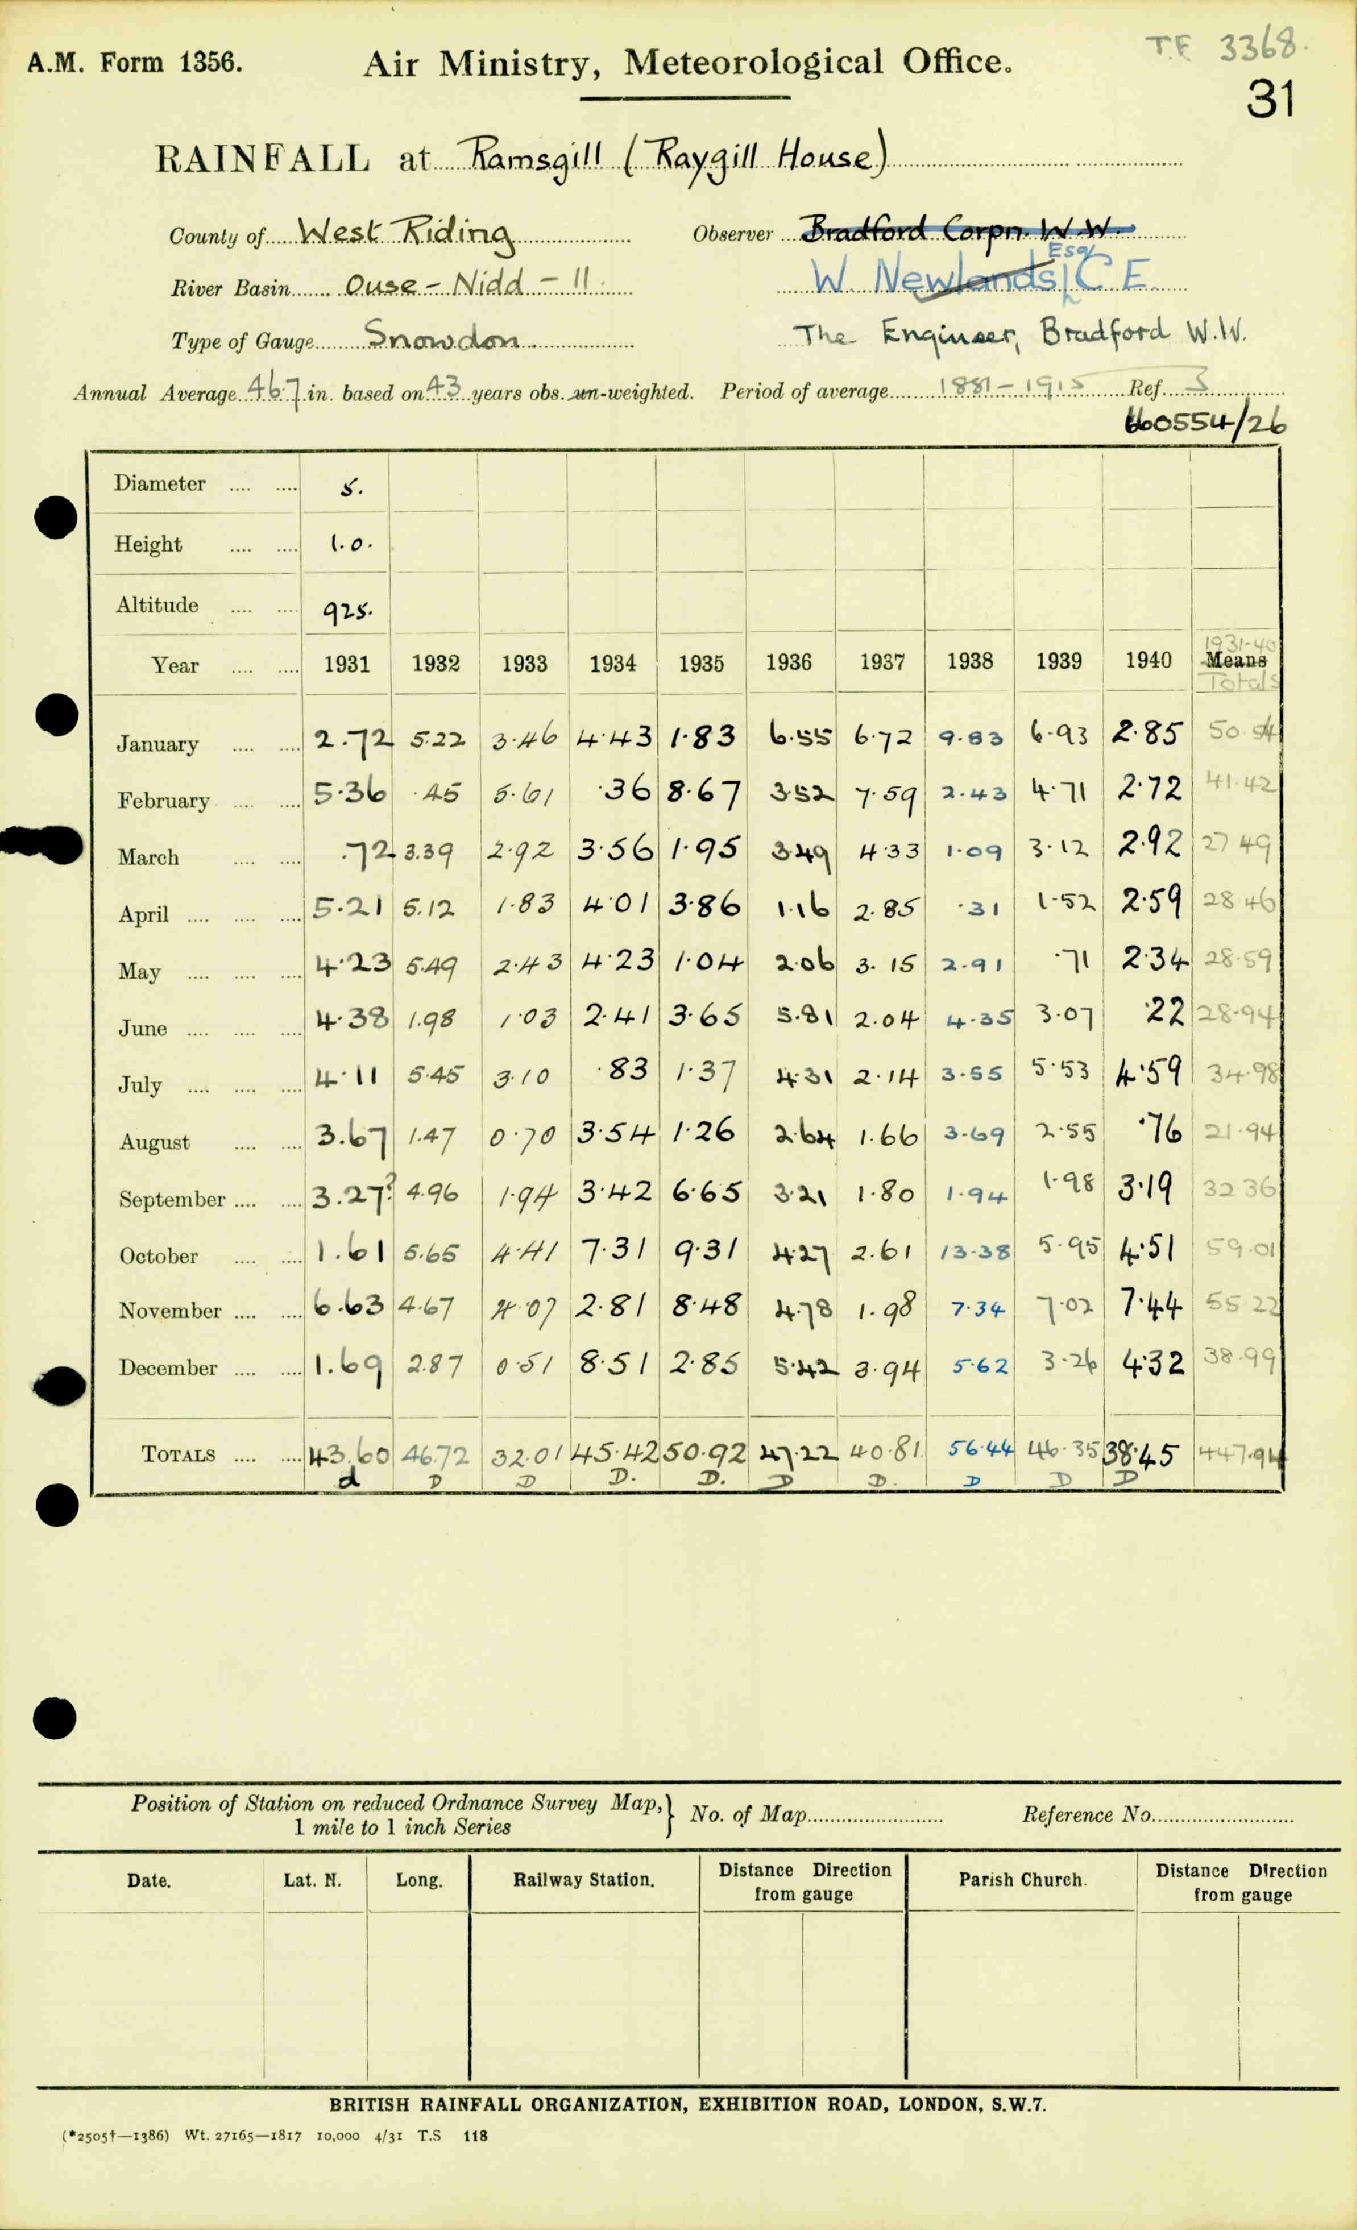 T.F 3368.
A.M. Form 1356. Air Ministry, Meteorological Office.
31
RAINFALL at Ramsgill (Raygill House)
County of West Riding Observer Bradford Corpn. W.W.
River Basin Ouse - Nidd - 11. W. Newlands Esq C E.
Type of Gauge Snowdon. The Engineer, Bradford W.W.
Annual Average 46.7 in. based on 43 years obs. un-weighted. Period of average 1881-1915 Ref. S
60554/26
Diameter .... .... 5.
Height .... .... 1.0.
Altitude .... .... 925.
Year .... .... 1931 1932 1933 1934 1935 1936 1937 1938 1939 1940 1931-40 Means Totals
January .... .... 2.72 5.22 3.46 4.43 1.83 6.55 6.72 9.83 6.93 2.85 50.54
February .... .... 5.36 .45 5.61 .36 8.67 3.52 7.59 2.43 4.71 2.72 41.42
March .... .... .72 3.39 2.92 3.56 1.95 3.49 4.33 1.09 3.12 2.92 27.49
April .... .... .... 5.21 5.12 1.83 4.01 3.86 1.16 2.85 .31 1.52 2.59 28.46
May .... .... .... 4.23 5.49 2.43 4.23 1.04 2.06 3.15 2.91 .71 2.34 28.59
June .... .... .... 4.38 1.98 1.03 2.41 3.65 5.81 2.04 4.35 3.07 .22 28.94
July .... .... .... 4.11 5.45 3.10 .83 1.37 4.31 2.14 3.55 5.53 4.59 34.98
August .... .... 3.67 1.47 0.70 3.54 1.26 2.64 1.66 3.69 2.55 .76 21.94
September .... .... 3.27? 4.96 1.94 3.42 6.65 3.21 1.80 1.94 1.98 3.19 32.36
October .... .... 1.61 5.65 4.41 7.31 9.31 4.27 2.61 13.38 5.95 4.51 59.01
November .... .... 6.63 4.67 4.07 2.81 8.48 4.78 1.98 7.34 7.02 7.44 55.22
December .... .... 1.69 2.87 0.51 8.51 2.85 5.42 3.94 5.62 3.26 4.32 38.99
TOTALS .... .... 43.60 46.72 32.01 45.42 50.92 47.22 40.81 56.44 46.35 38.45 447.94
d D D D. D. D D. D D D
Position of Station on reduced Ordnance Survey Map,} No. of Map Reference No.
1 mile to 1 inch Series
Date. Lat. N. Long. Railway Station. Distance Direction from gauge Parish Church. Distance Direction from gauge
BRITISH RAINFALL ORGANIZATION, EXHIBITION ROAD, LONDON, S.W.7.
(*2505†—1386) Wt. 27165—1817 10,000 4/31 T.S 118